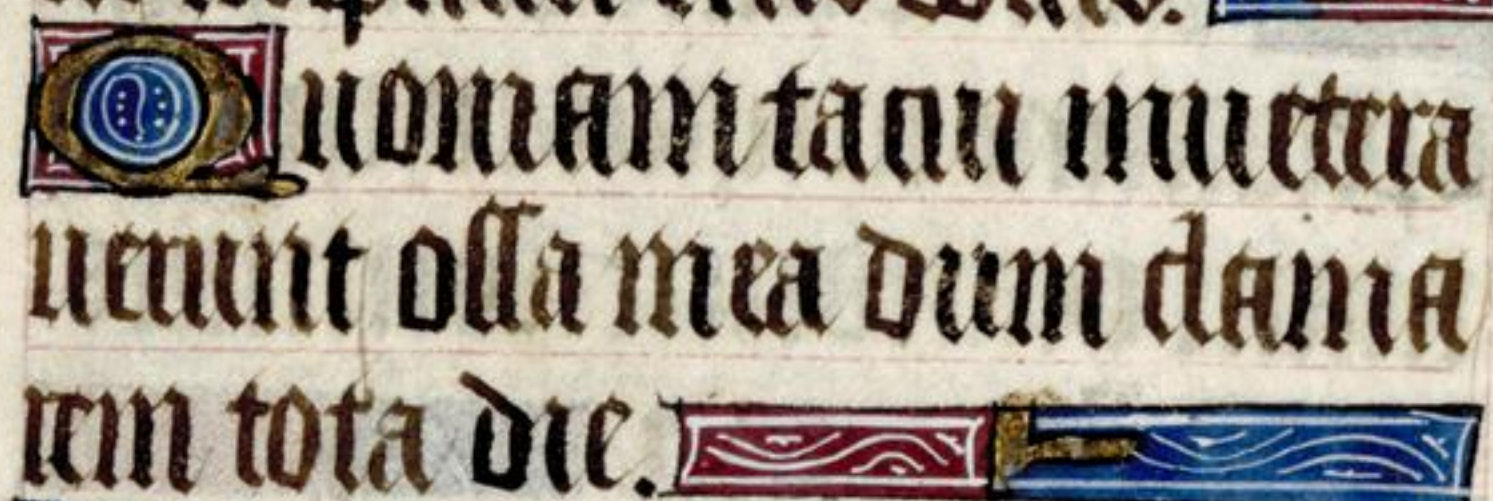 Quoniam tacui inuetera
uerunt ossa mea dum clama
rem tota die.